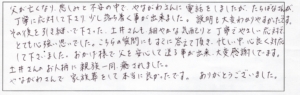 父が亡くなり悲しみと不安の中で、やながわさんに電話をしましたが、たちばなさんが
丁寧に対応して下さり少し落ち着く事が出来ました。説明も大変わかりやすかったです。
その後を引き継いで下さった、土井さんも細やかな気配りと丁寧でやさしい対応で
とても心強い思いでした。こちらの質問にもすぐに答えて頂き、忙しい中心良くお対応
して下さいました。おかげ様で父を安心して送る事が出来大変感謝しています。
土井さんのお人柄に親族一同癒されました。
やながわさんで家族葬をして本当に良かったです。ありがとうございました。